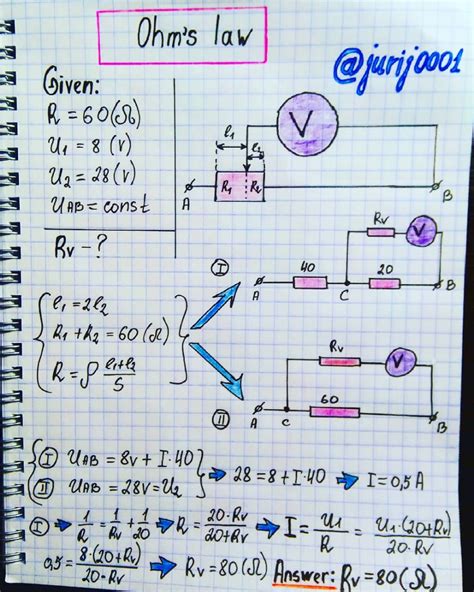 Ohm's law
@jurij0001
Given:
R = 60 (Ω)
U1 = 8 (V)
U2 = 28 (V)
UAB = const
Rv - ?
V
l1
l2
A
R1
R2
B
I
Rv
V
A
40
C
20
B
l1 = 2l2
R1 + R2 = 60 (Ω)
R = ρ (l1+l2)/S
Rv
V
II
A
C
60
B
I UAB = 8V + I·40
II UAB = 28V = U2
28 = 8 + I·40
I = 0,5 A
I 1/R = 1/Rv + 1/20
R = 20·Rv/(20+Rv)
I = U1/R = U1·(20+Rv)/(20·Rv)
0,5 = 8·(20+Rv)/(20·Rv)
Rv = 80 (Ω)
Answer: Rv = 80 (Ω)